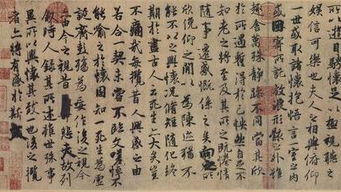 所以遊目騁懷足以極視聽之
娛信可樂也夫人之相與俯仰
一世或取諸懷抱悟言一室之內
或因寄所託放浪形骸之外雖
趣舍萬殊靜躁不同當其欣
於所遇蹔得於己怏然自足不
知老之將至及其所之既惓情
隨事遷感慨係之矣向之所
欣俛仰之間以為陳迹猶不
能不以之興懷況脩短隨化終
期於盡古人云死生亦大矣豈
不痛哉每攬昔人興感之由
若合一契未嘗不臨文嗟悼不
能喻之於懷固知一死生為虛
誕齊彭殤為妄作後之視今
亦由今之視昔悲夫故列
敘時人錄其所述雖世殊事
異所以興懷其致一也後之攬
者亦將有感於斯